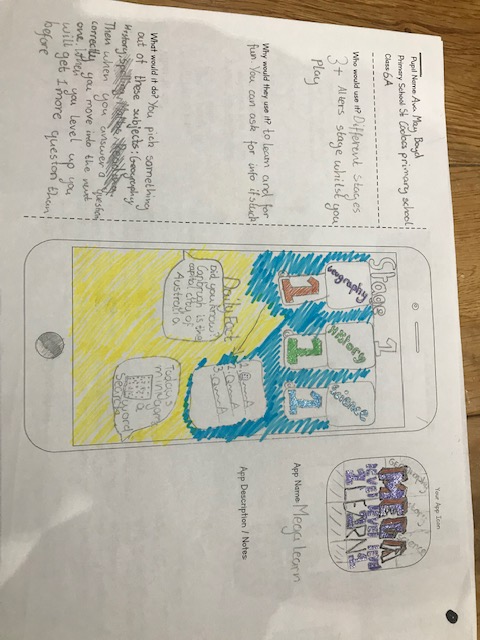 Pupil Name Ava May Boyd
Primary School St Cadocs primary school
Class 6A
Who would use it? Different stages
3+ Alters stage whilst you
play
Why would they use it? to learn and for
fun. You can ask for info if stuck
What would it do? You pick something
out of these subjects: Geography
History
Then when you answer a question
correctly you move into the next
one. When you level up you
will get 1 more question than
before
Stage 1
Geography
History
Science
1
1
1
Daily Fact
Did you know?
is the
capital city of
Australia
1. Q A
2. Q A
3. Q A
Todays
minigame
Wordsearch
Your App Icon
MEGA
LEARN
App Name: Mega learn
App Description / Notes: